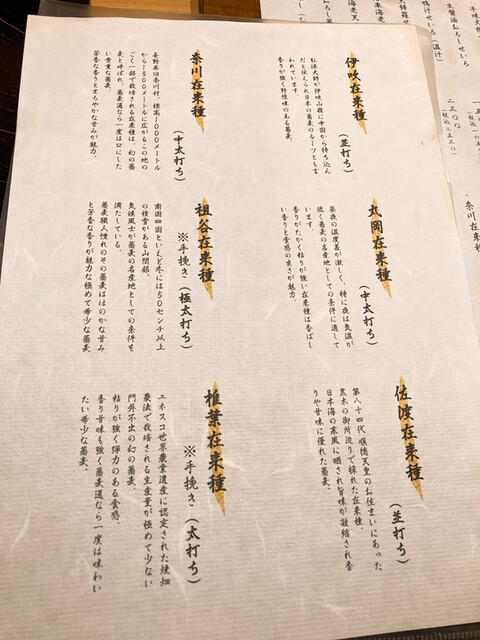 伊吹在来種
(並打ち)
弘法大師が伊吹山麓に中国から持ち込ん
だと伝えられ日本の蕎麦のルーツとも言
われています。
香りが強く野性味のある蕎麦。
奈川在来種
(中太打ち)
長野県旧奈川村、標高1000メートル
から1500メートルに広がるこの地の
ごく一部で栽培される在来種は、幻の蕎
麦と呼ばれ、蕎麦通なら一度は口にした
い貴重な蕎麦。
芳香な香りとまろやかな甘みが魅力。
丸岡在来種
(中太打ち)
昼夜の温度差が激しく、特に夜は気温が
低く蕎麦の名産地としての条件に適して
います。
香りがたかく粘りが強い在来種は香ばし
い香りと食感の良さが魅力。
祖谷在来種
※手挽き(極太打ち)
南国四国といえど冬には50センチ以上
の積雪がある山間部。
気候風土が蕎麦の名産地としての条件を
満たしている。
蕎麦職人憧れのその蕎麦はほのかな甘み
と芳香な香りが魅力な極めて希少な蕎麦
佐渡在来種
(並打ち)
第八十四代 順徳天皇のお住まいにあった
黒木の御所辺りで採れた在来種。
日本海の寒風に晒され旨味が凝縮され香
りや甘味に優れた蕎麦。
椎葉在来種
※手挽き(太打ち)
ユネスコ世界農業遺産に認定された焼畑
農法で栽培される生産量が極めて少ない
門外不出の幻の蕎麦。
粘りが強く弾力のある食感、
香り甘味も強く蕎麦通なら一度は味わい
たい希少な蕎麦。